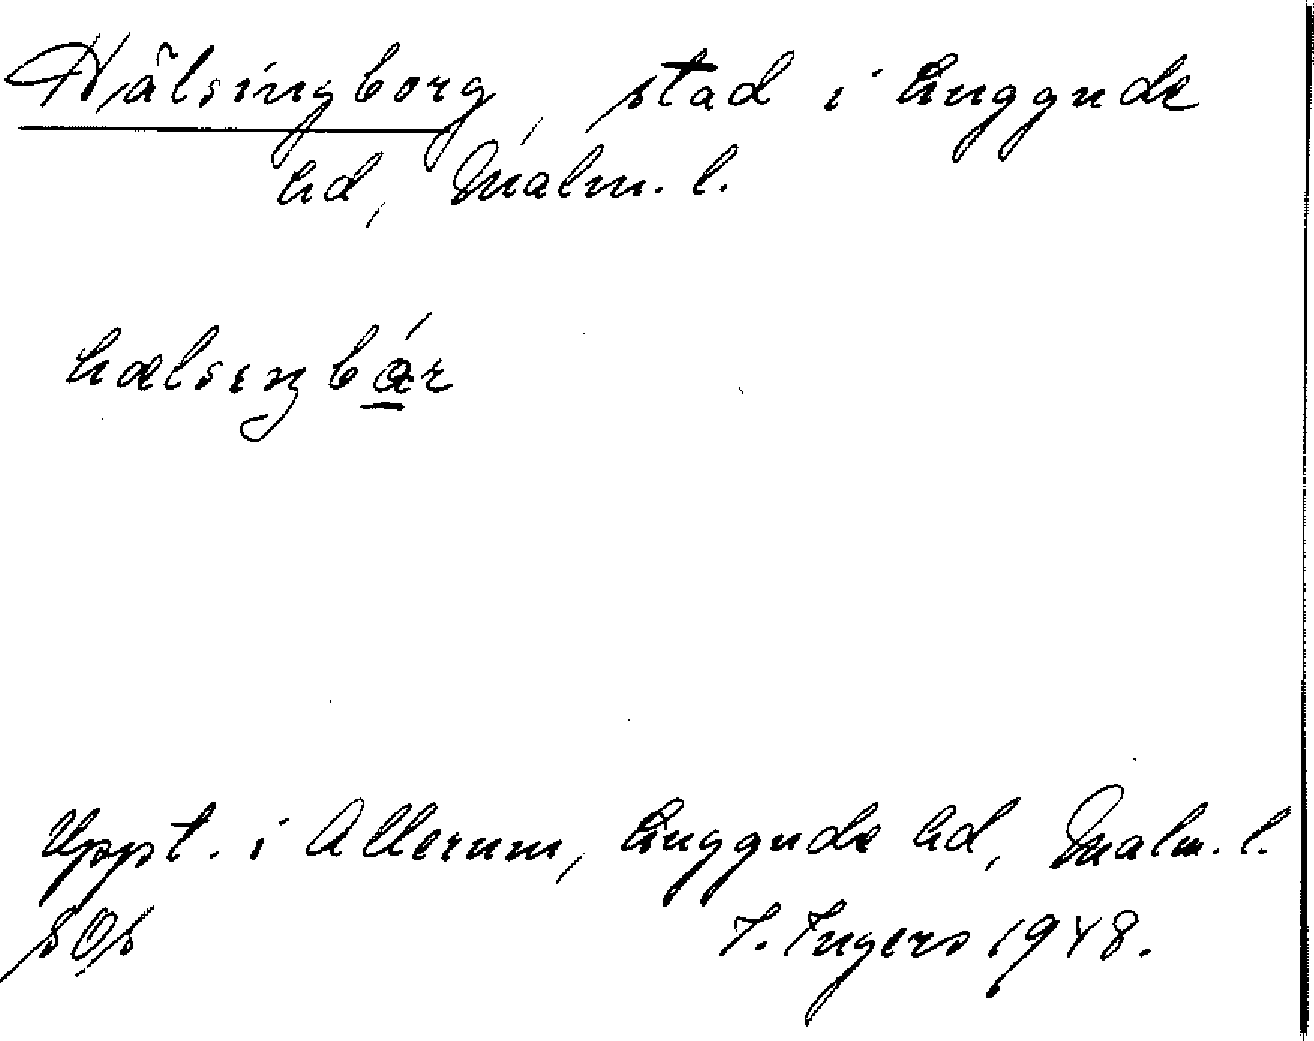 Hälsingborg, stad i Luggude
hd, Malm. l.
hælsıŋbár
Uppt. i Allerum, Luggude hd, Malm. l.
I. Ingers 1948.